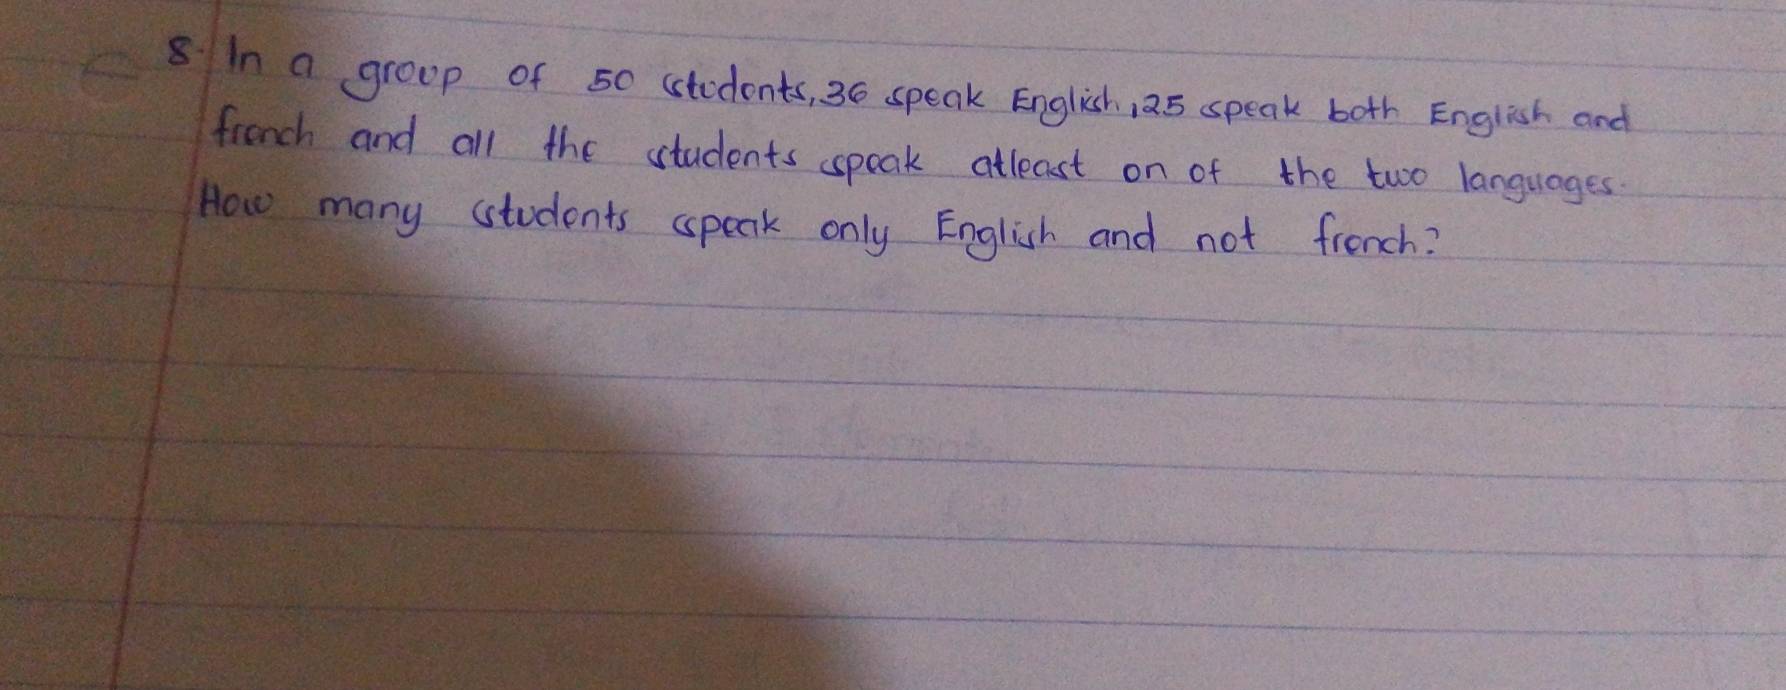 8. In a group of 50 students, 36 speak English, 25 speak both English and
french and all the students speak atleast on of the two languages.
How many students speak only English and not french?